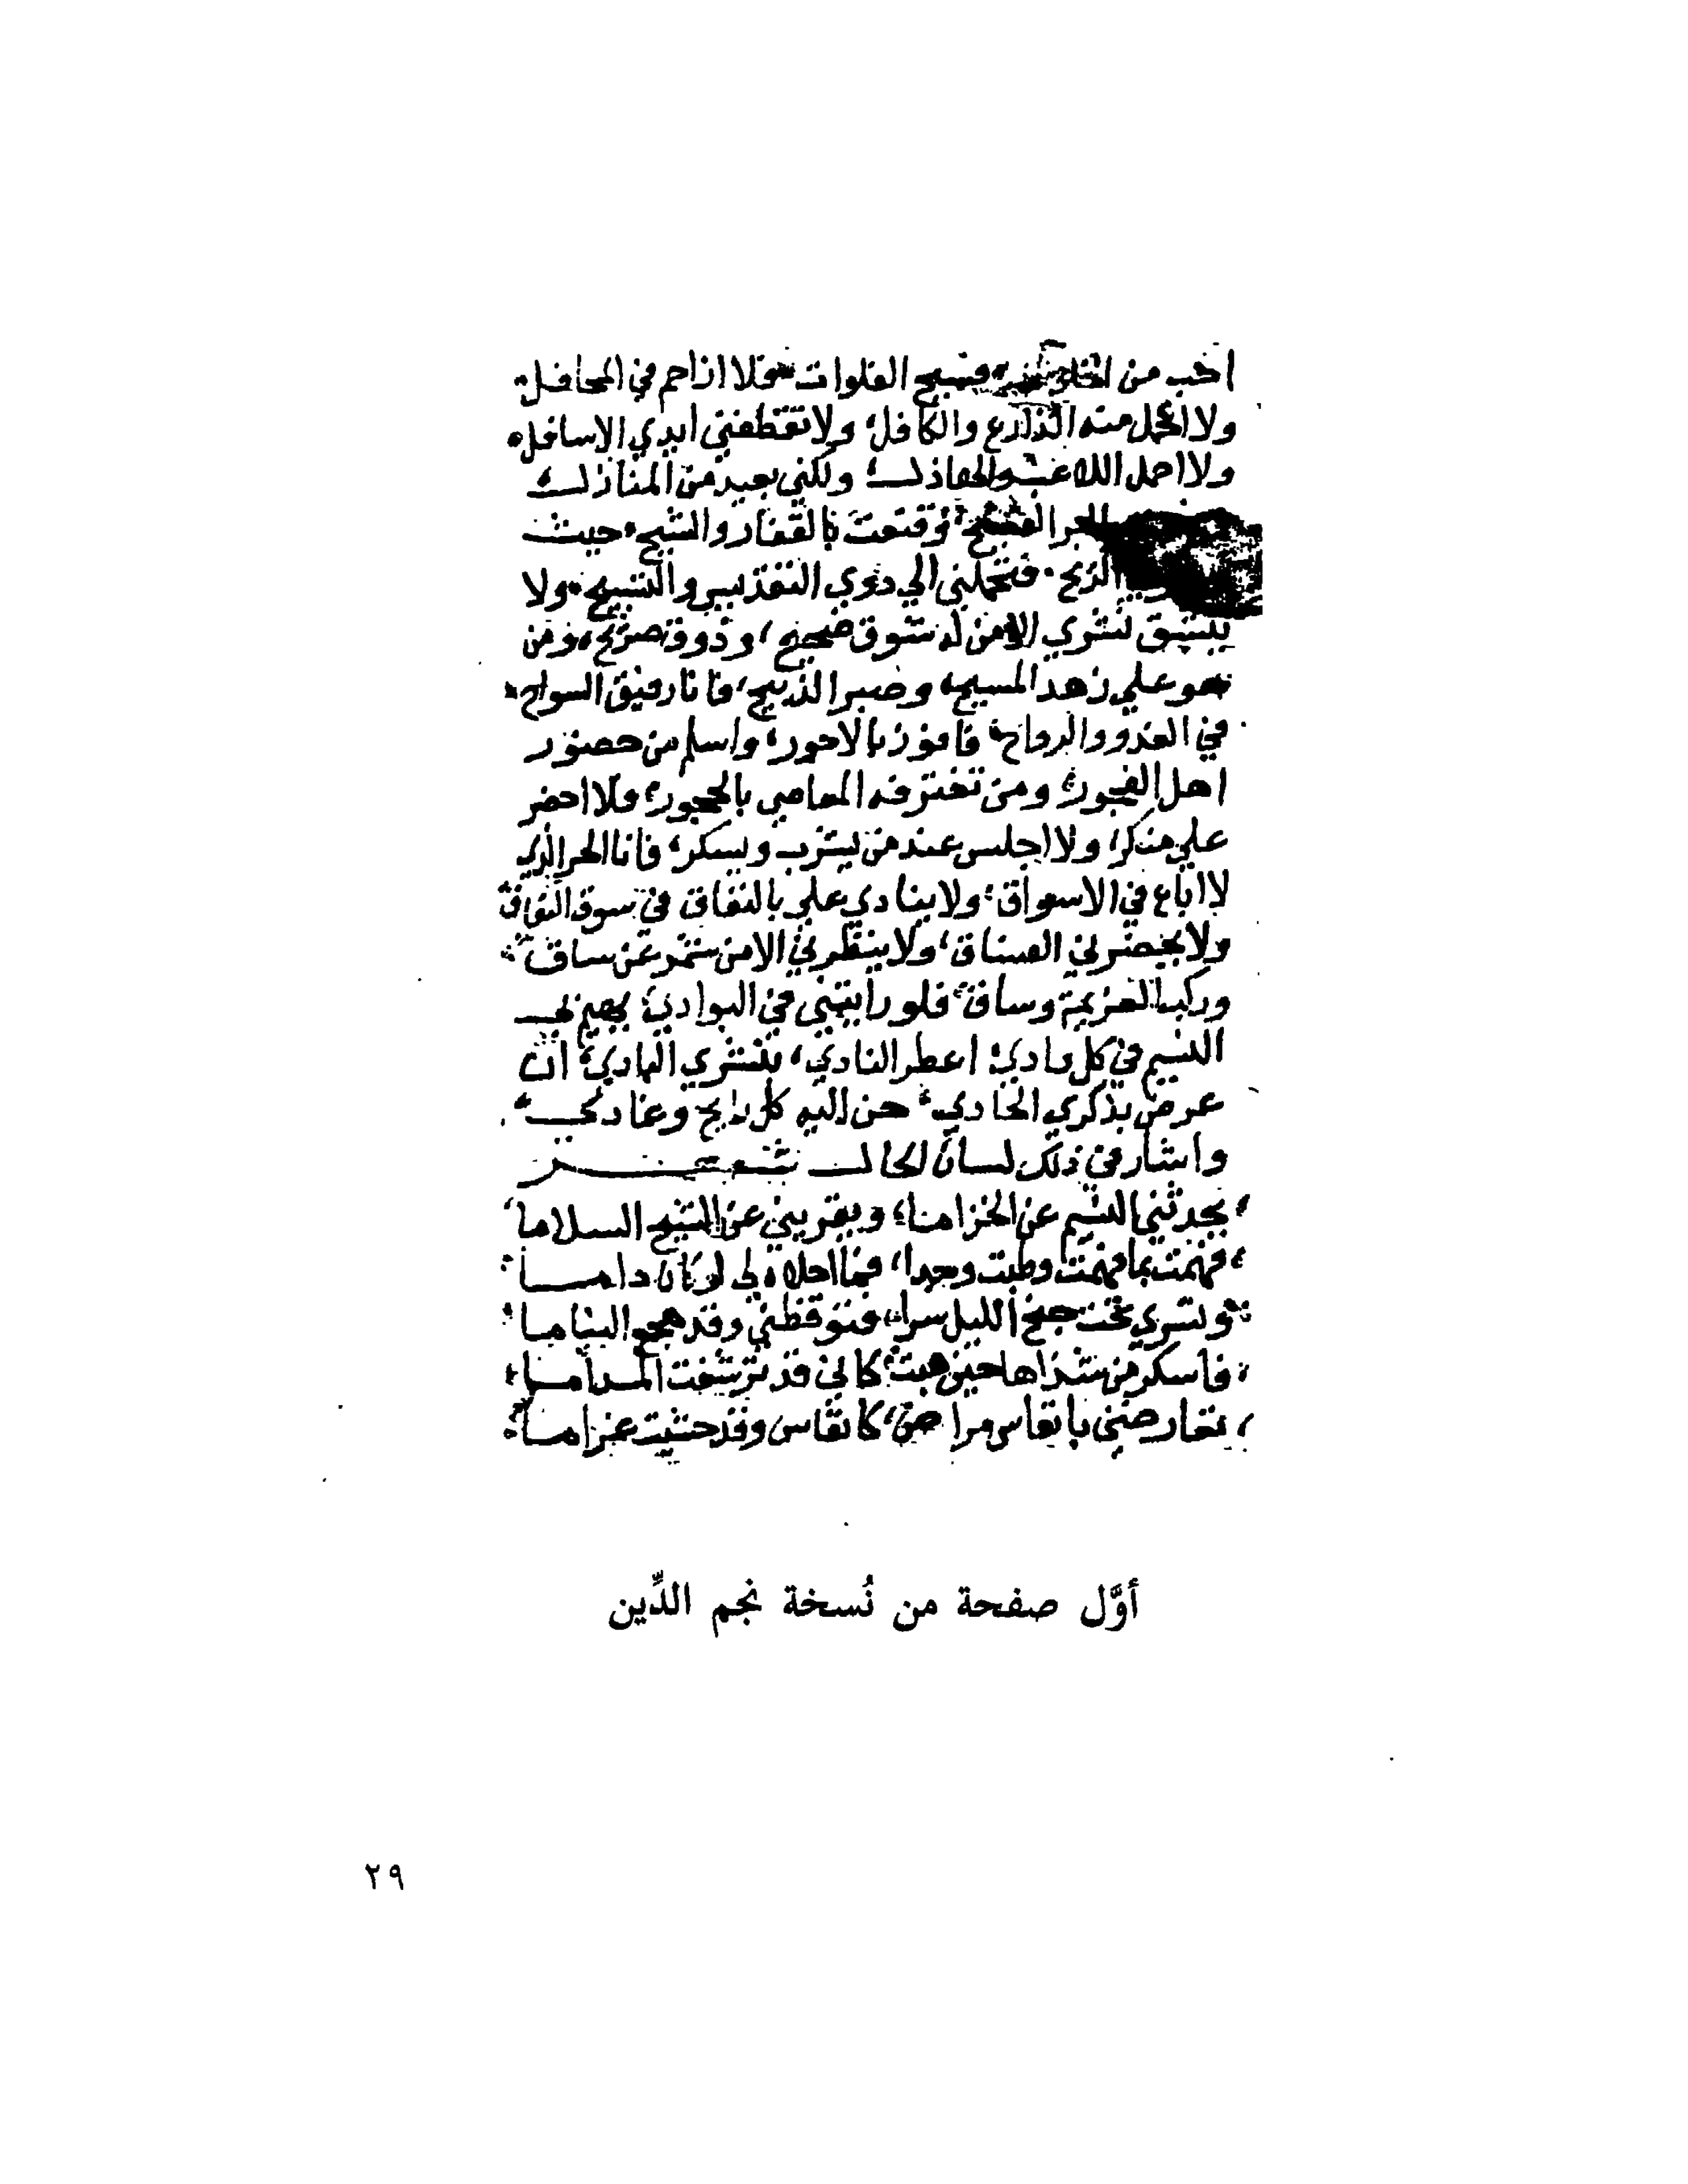 احب من الخلوات فسيح الفلوات فلا ازاحم في المحافل
ولا احمل منه الذارع والكافل ولا تقطفني ايدي الاسافل
ولا احمل اللاعب والهاذل ولكني بعيد من المنازل
وقنعت بالقفار والشيح حيث
الريح فتحملني الي ذوي التقديس والتسبيح ولا
يستنشق نشري الا من له شوق صحيح وذوق صريح ومن
هو علي زهد المسيح وصبر الذبيح فانا رفيق السواح
في الغدو والرواح فافوز بالاجور واسلم من حضور
اهل الفجور ومن تغترفه المعاصي بالحجور فلا احضر
علي منكر ولا اجلس عند من يشرب ويسكر فانا الحر الذي
لا اباع في الاسواق ولا ينادي علي بالنفاق في سوق النفاق
ولا يحضرني الفساق ولا ينظرني الا من شمر عن ساق
وركب العزيمة وساق فلو رايتني في البوادي يهيم بي
النسيم في كل وادي اعطر النادي بنشري البادي ان
عرض بذكري الحادي حن اليه كل رايح وغادي
واشار في ذلك لسان الحال شعر
يحدثني النسيم عن الخزاما ويقريني عن الشيح السلاما
فهمت بما فهمت وطبت وجدا فما احلاه لي لو كان داما
ويسري تحت جنح الليل سرا فتوقظني وقد هجع النياما
فاسكر من شذاها حين هبت كاني قد ترشفت المداما
تعارضني بانفاس مراض كانفاس وقد حشيت غراما
أوَّل صفحة من نُسخة نجم الدِّين
٢٩